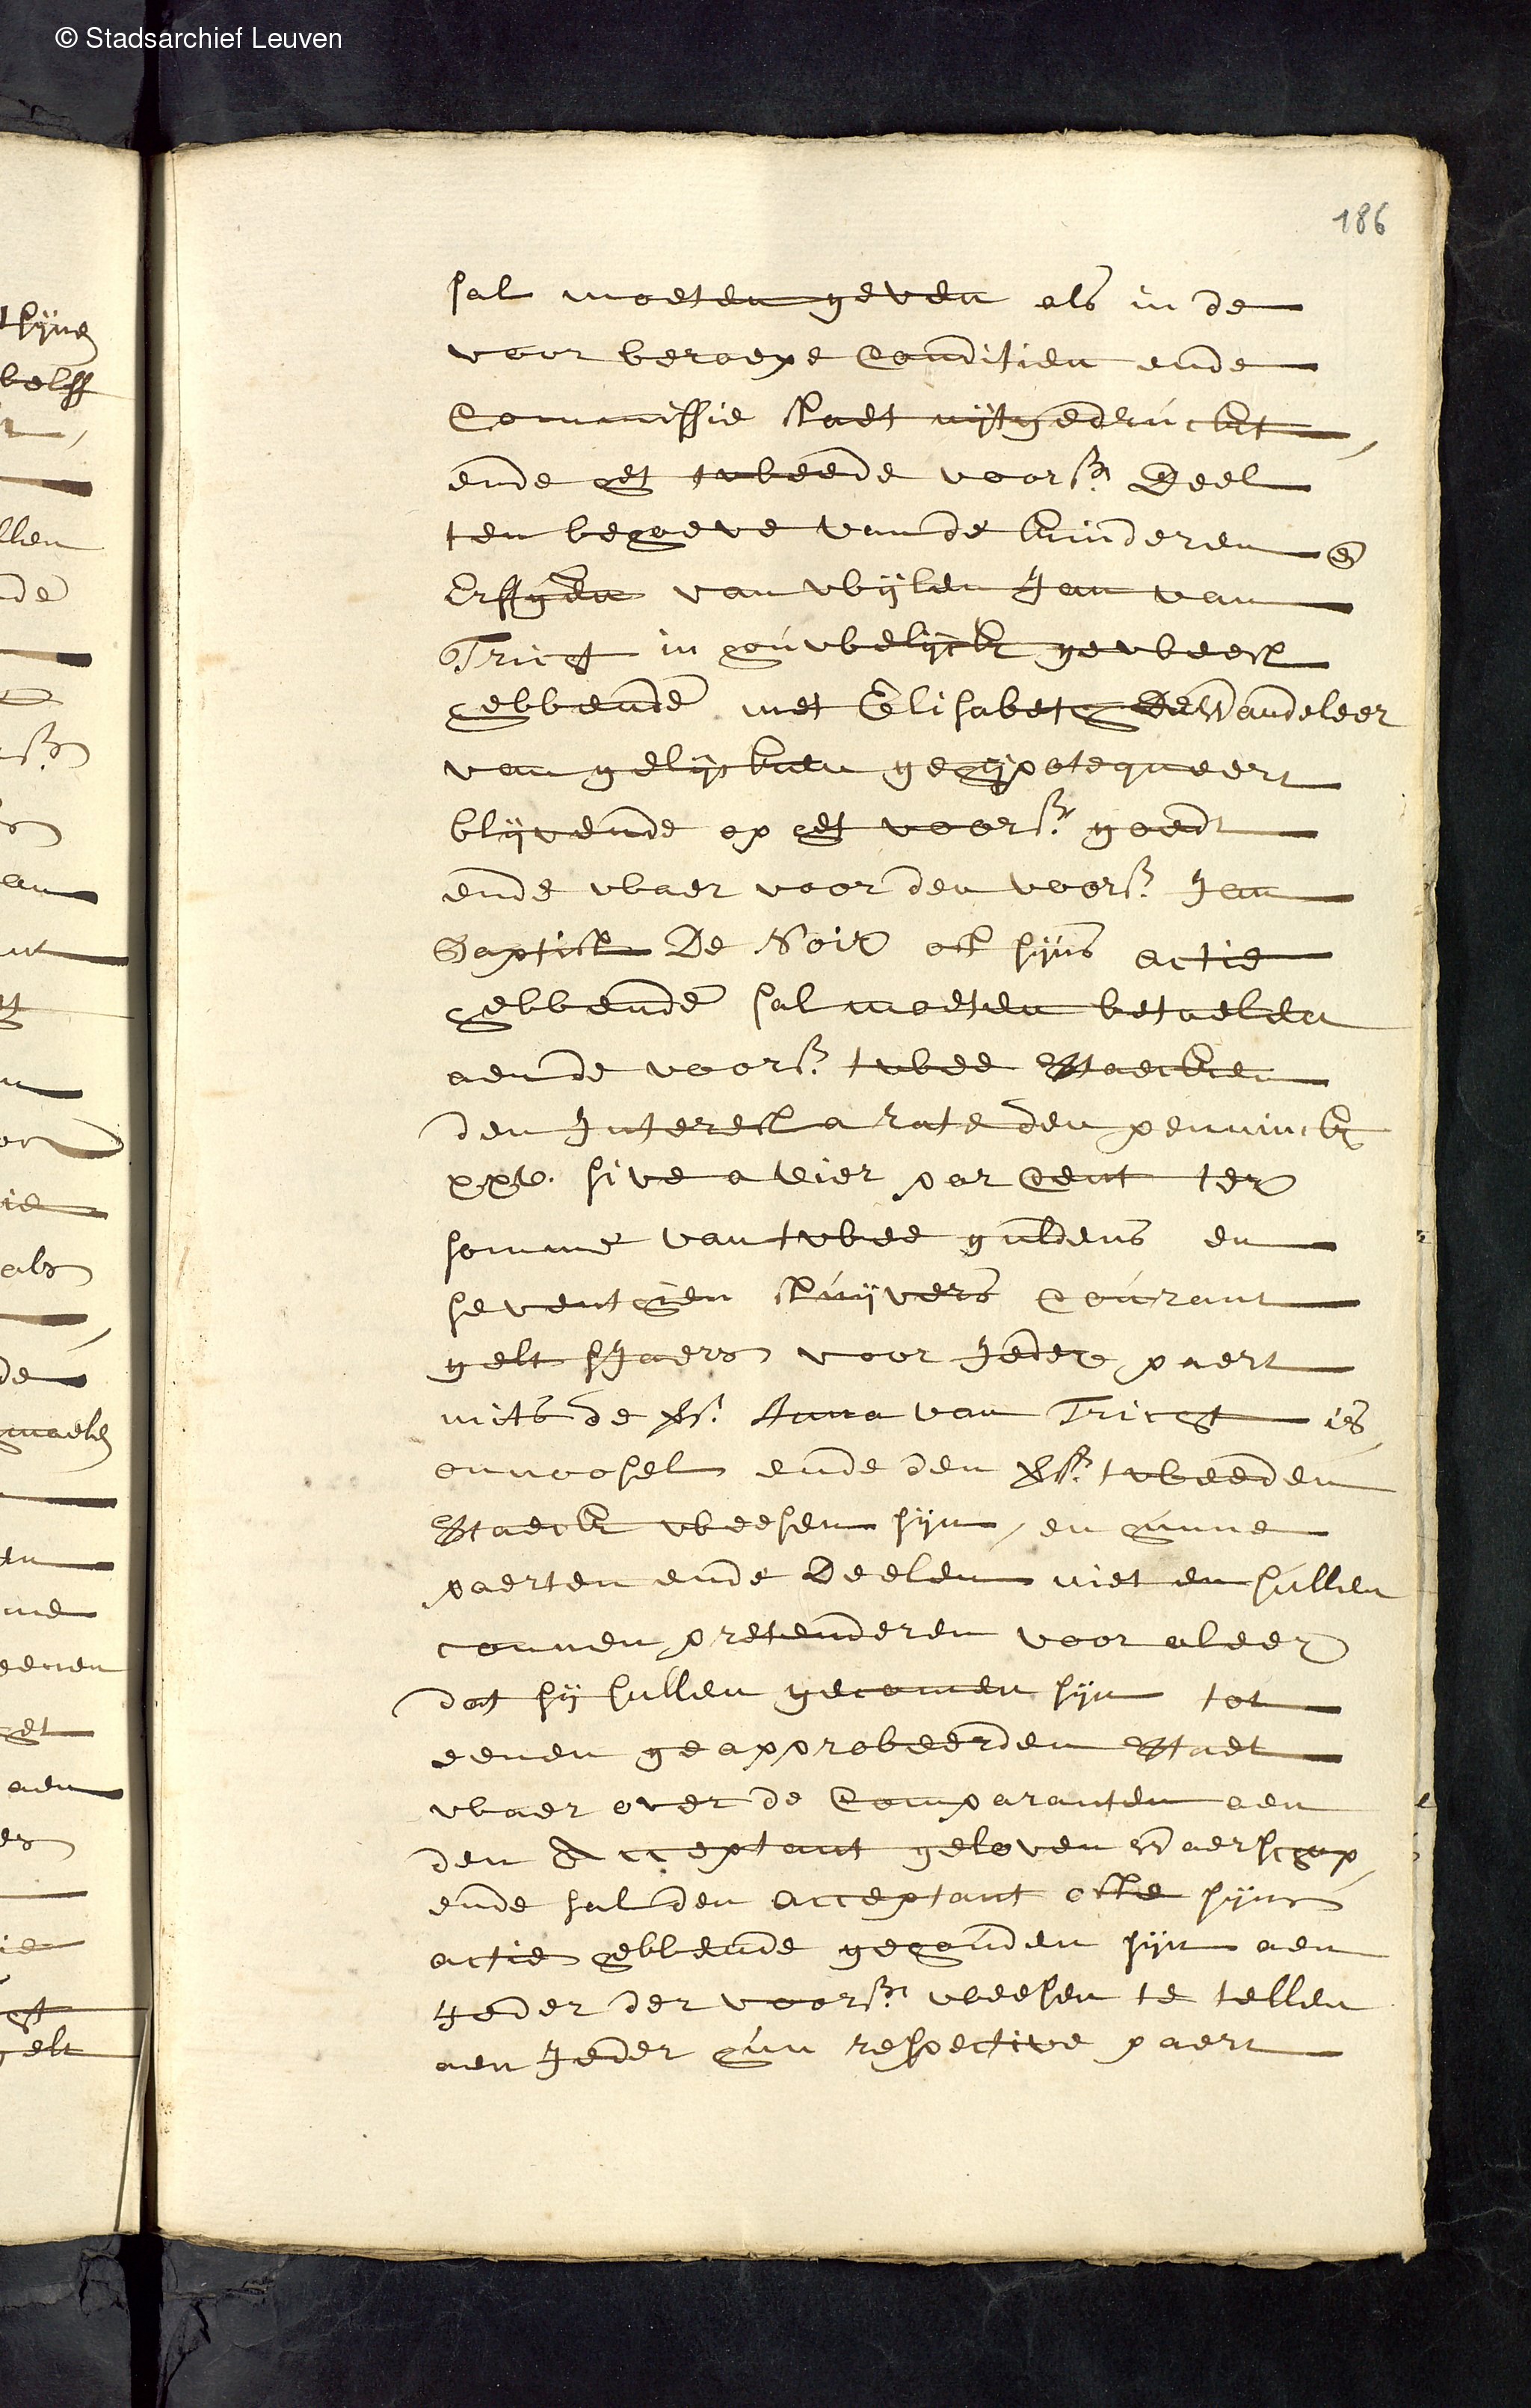 © Stadsarchief Leuven
186
sal moeten geven als in de
voor beroepe Conditien ende
Commissie staet uijtgedruckt,
ende het tweede voors. Deel
ten behoeve van de kinderen en
Erffgen van wijlen Jan van
Tricht in houwelijck geweest
hebbende met Elisabeth De Wandeleer
van gelijcken gehijpotequeert
blijvende op het voors. goedt
ende waer voor den voors. Jan
Baptist De Noir oft sijns actie
hebbende sal moeten betaelen
aen de voors. twee Staecken
den Interest a rate den penninck
xxv. sive a vier par Cent ter
somme van twee guldens en
seventhien stuijvers Courant
gelt sJaers voor Jeder paert
mits de vs. Anna van Tricht is
onnoosel ende den vs. tweeden
Staeck weesen sijn, en hunne
paerten ende Deelen niet en sullen
connen pretenderen voor aleer
dat sij sullen gecomen sijn tot
eenen geapprobeerden Staet
waer over de Comparanten aen
den Acceptant geloven Waerschap,
ende sal den acceptant ofte sijns
actie hebbende gehouden sijn aen
Jeder der voors. weesen te tellen
aen Jeder hun respective paert